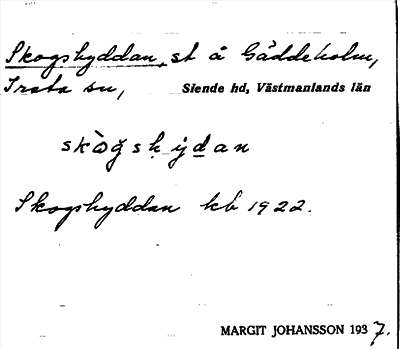 Skogshyddan, st å Gäddeholm,
Irsta sn, Siende hd, Västmanlands län
skògshydan
Skogshyddan kb 1922.
MARGIT JOHANSSON 1937.